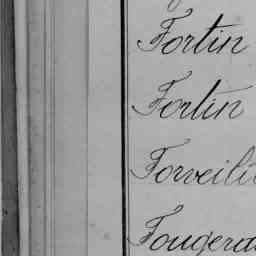 Fortin
Fortin
Forveili
Fougera